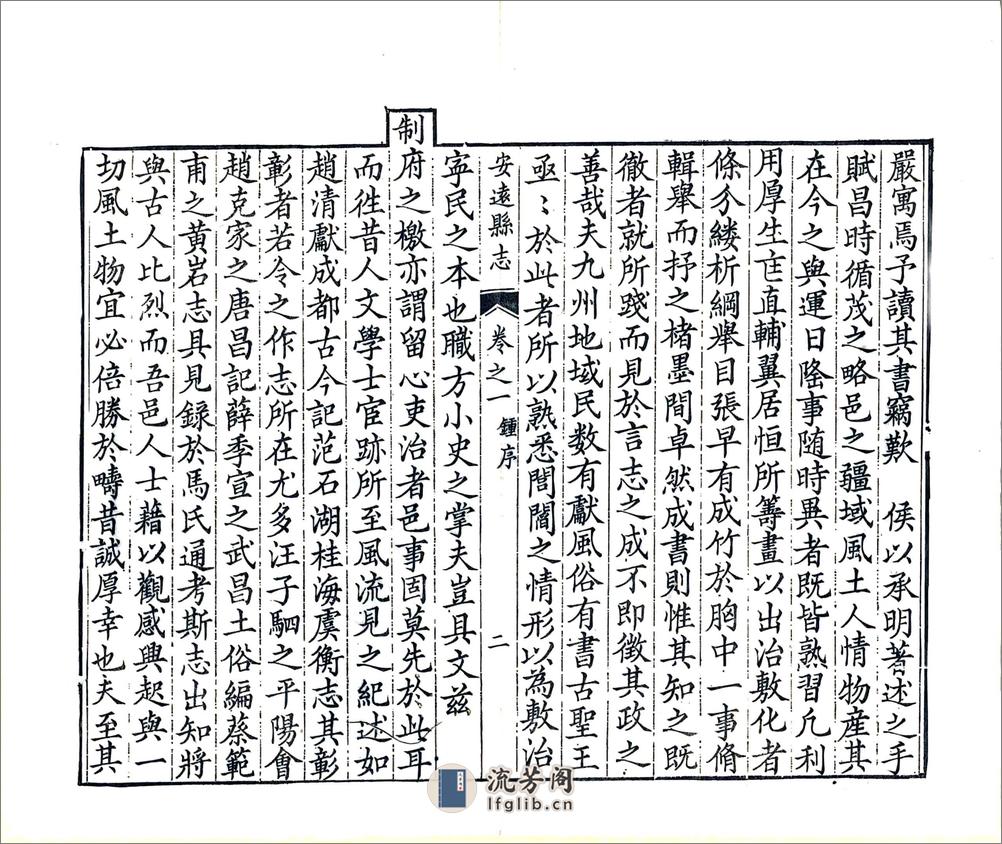 嚴寓焉予讀其書竊歎　侯以承明著述之手
賦昌時循茂之略邑之疆域風土人情物產其
在今之與運日隆事随時異者既皆熟習凢利
用厚生𠤷直輔翼居恒所籌畫以出治敷化者
條分縷析綱舉目張早有成竹於胸中一事脩
輯舉而抒之楮墨間卓然成書則惟其知之既
徹者就所踐而見於言志之成不即徵其政之
善哉夫九州地域民数有獻風俗有書古聖王
亟〻於此者所以熟悉閭閻之情形以為敷治
寜民之本也職方小史之掌夫豈具文兹
安遠縣志　卷之一　鍾序　二
制府之檄亦謂留心吏治者邑事固莫先於此耳
而徃昔人文學士宦跡所至風流見之紀述如
趙清獻成都古今記范石湖桂海虞衡志其彰
彰者若令之作志所在尤多汪子駟之平陽會
趙克家之唐昌記薛季宣之武昌土俗編蔡範
甫之黄岩志具見錄於馬氏通考斯志出知將
與古人比烈而吾邑人士藉以觀感興起與一
切風土物宜必倍勝於疇昔誠厚幸也夫至其
流芳阁
lfglib.cn